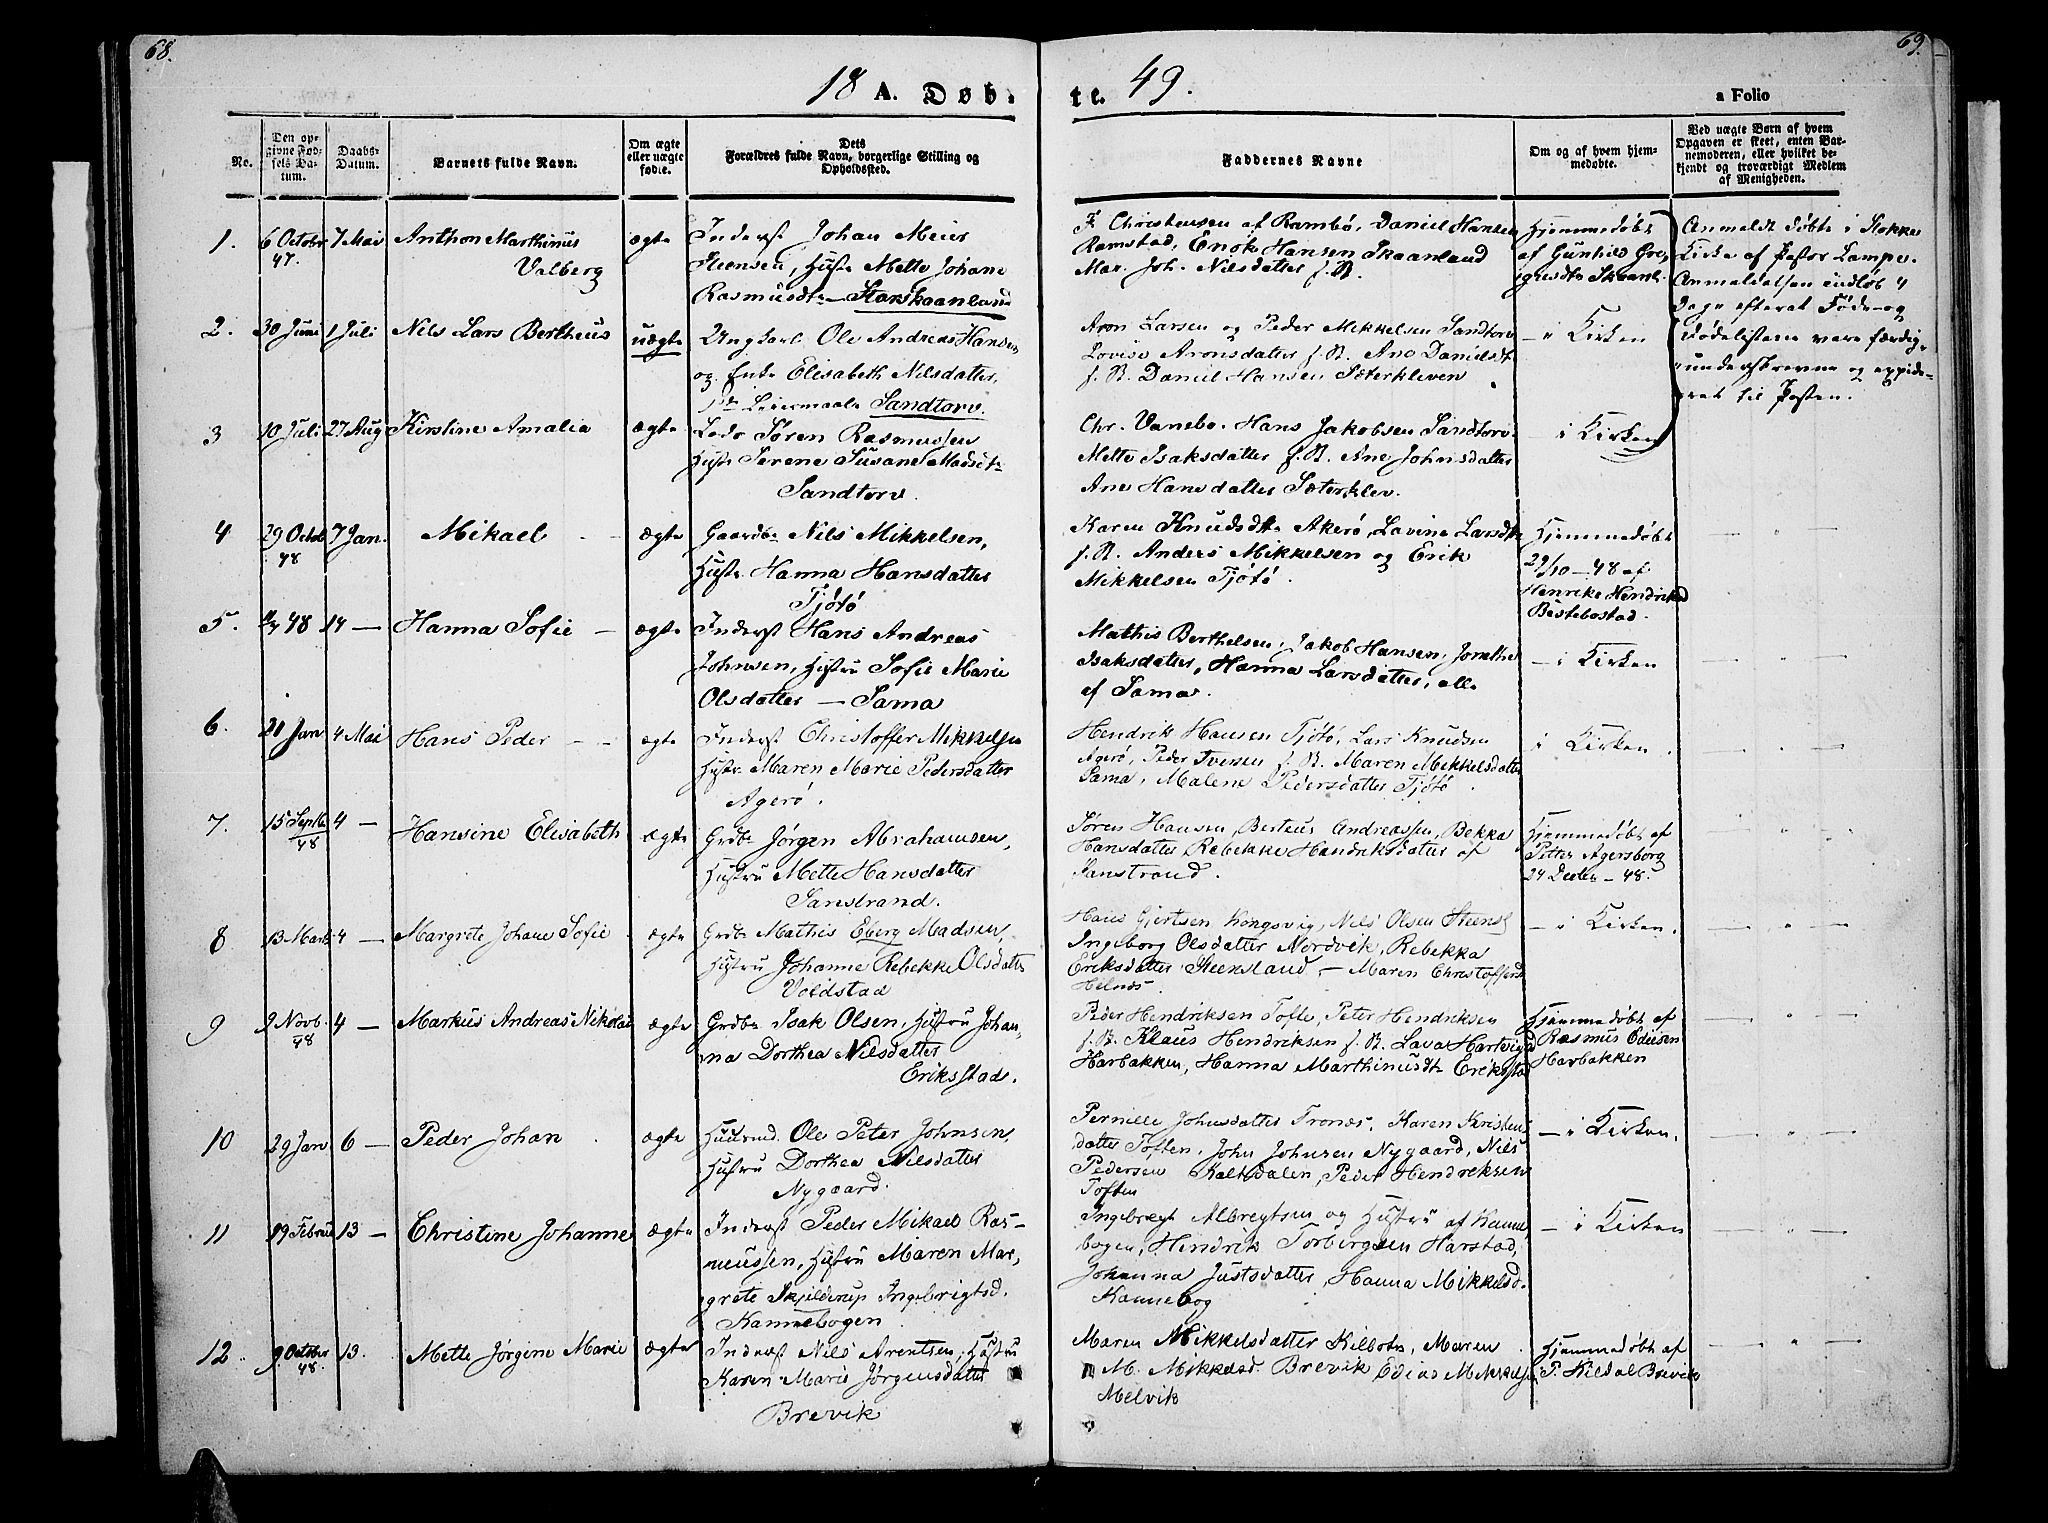 68.
69.
18 A. Døb-
te. 49.
a Folio
No.
Den op-
givne Fød-
sels Da-
tum.
Daabs-
Datum.
Barnets fulde Navn.
Om ægte
eller uægte
fødte.
Dets
Forældres fulde Navn, borgerlige Stilling og
Opholdssted.
Faddernes Navne
Om og af hvem hjem-
medøbte.
Ved uægte Børn af hvem
Opgaven er skeet, enten Bar-
nemoderen, eller hvilket be-
kjendt og troværdigt Medlem
af Menigheden.
1.
6 Octobr
47.
7 Mai
Anthon Marthinus
Valberg
ægte
Inderst Johan Meier
Steensen, Hustr Mette Johane
Rasmusdtr - Storskaanland
F Christensen af Rambø, Daniel Hansen
Ramstad, Enok Hansen Skaanland
Mar. Joh. Nilsdatter s. St.
Hjemmedøbt
af Gunhild Gre-
Skaanl.
Anmeldt døbt i Stokke
Kirke af Pastor Lampe.
Anmeldelsen indløb 4
Dage efterat Føde- og
Dødelisterne vare færdig
underskrevne og expide-
ret til Posten.
2.
30 Juni
1 Juli
Nils Lars Bertheus
uægte
Ungkarl Ole Andreas Hansen
og Enke Elisabeth Nilsdatter,
Leiermaal Sandtorv.
Aron Larsen og Peder Mikkelsen Sandtorv
Lovise Aronsdatter s. St. Ane Danielsdt
s. St. Daniel Hansen Sæterkleven
- i Kirken
3
10 Juli
27 Aug
Kirstine Amalia
ægte
Søren Rasmussen
Hustr Serene Susane Madsdtr
Sandtorv.
Chr. Vanebo. Hans Jakobsen Sandtorv.
Mette Isaksdatter s. St. Ane Johnsdatter
Ane Hansdatter Sæterklev.
- i Kirken
4
29 Octob
48
7 Jan.
Mikael
ægte
Gaardbr Nils Mikkelsen,
Hustr Hanna Hansdatter
Tjøtø
Karen Knudsdtr Akerø, Lavine Larsdtr
s. St. Anders Mikkelsen og Erik
Mikkelsen Tjøtø.
Hjemmedøbt
29/10-48 af
Henrike Hendriksd
Bestebostad.
5.
48
14 -
Hanna Sofie -
ægte
Inderst Hans Andreas
Johnsen, Hustru Sofie Marie
Olsdatter - Sama
Mathis Berthelsen, Jakob Hansen,
Isaksdatter, Hanna Larsdatter, alle
af Sama.
- i Kirken
6.
21 Jan
4 Mai
Hans Peder - -
ægte
Inderst Christoffer Mikkelsen
Hustr Maren Marie Pedersdatter
Agerø.
Hendrik Hansen Tjøtø, Lars Knudsen
Agerø, Peder Iversen s. St. Maren Mikkelsdatter
Sama, Malene Pedersdatter Tjøtø.
i Kirken.
7.
15 Septbr
48
4 -
Hansine Elisabeth
ægte
Grdbr Jørgen Abrahamsen,
Hustru Mette Hansdatter
Sanstrand.
Søren Hansen, Berteus Andreassen, Bekka
Hansdatter Rebekke Hendriksdatter af
Sanstrand.
Hjemmedøbt af
Petter Agersborg
24 Decbr - 48.
8
13 Marts
4 -
Margrete Johane Sofie
ægte
Grdbr Mathis Eberg Madsen,
Hustru Johanne Rebekke Olsdatter
Voldstad
Hans Gjertsen Kongsvig, Nils Olsen Steensl
Ingeborg Olsdatter Nordvik, Rebekka
Eriksdatter Steensland, - Maren Christoffersd
Helnæs.
- i Kirken.
9
9 Novb.
48
4 -
Markus Andreas Nikolai
ægte
Grdbr Isak Olsen, Hustru Johan-
na Dorthea Nilsdatter
Eriksstad.
Peder Hendriksen Tofte, Peter Hendriksen
s. St. Klaus Hendriksen s. St. Lava Hartvigd
Harbakken, Hanna Marthinusdtr Eriksstad
Hjemmedøbt af
Rasmus Ediesen
Harbakken
10
29 Jan
6 -
Peder Johan
ægte
Huusmd. Ole Peter Johnsen,
Hustru Dorthea Nilsdatter
Nygaard.
Pernille Johnsdatter Tronæs, Karen Kristens-
datter Toften, John Johnsen Nygaard, Nils
Pedersen Kaltdalen, Peder Hendriksen
Toften
- i Kirken.
11
19 Februar
13 -
Christine Johanne
ægte
Inderst Peder Mikael Ras-
mussen, Hustru Maren Mar-
grete Skjelderup Ingebrigtsd.
Kannebogen.
Ingebregt Albregtsen og Hustru af Kanne-
bogen, Hendrik Torbergsen Harstad,
Johanna Justsdatter, Hanna Mikkelsd.
Kannebog
- i Kirken
12.
9 October
48.
13.
Mette Jørgine Marie
ægte
Inderst Nils Arentsen, Hustru
Karen Marie Jørgensdatter
Brevik
Maren Mikkelsdatter Kilbotn, Maren
M. Mikkelsd. Brevik Edias Mikkelsen
Melvik
Hjemmedøbt af
P. Kildal Brevik